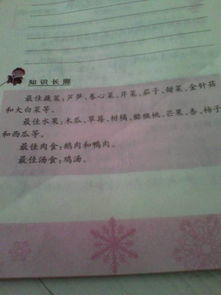 知识长廊
最佳蔬菜:芦笋、卷心菜、芹菜、茄子、甜菜、金针菇
和大白菜等。
最佳水果:木瓜、草莓、柑橘、猕猴桃、芒果、杏、柿子
和西瓜等。
最佳肉食:鹅肉和鸭肉。
最佳汤食:鸡汤。